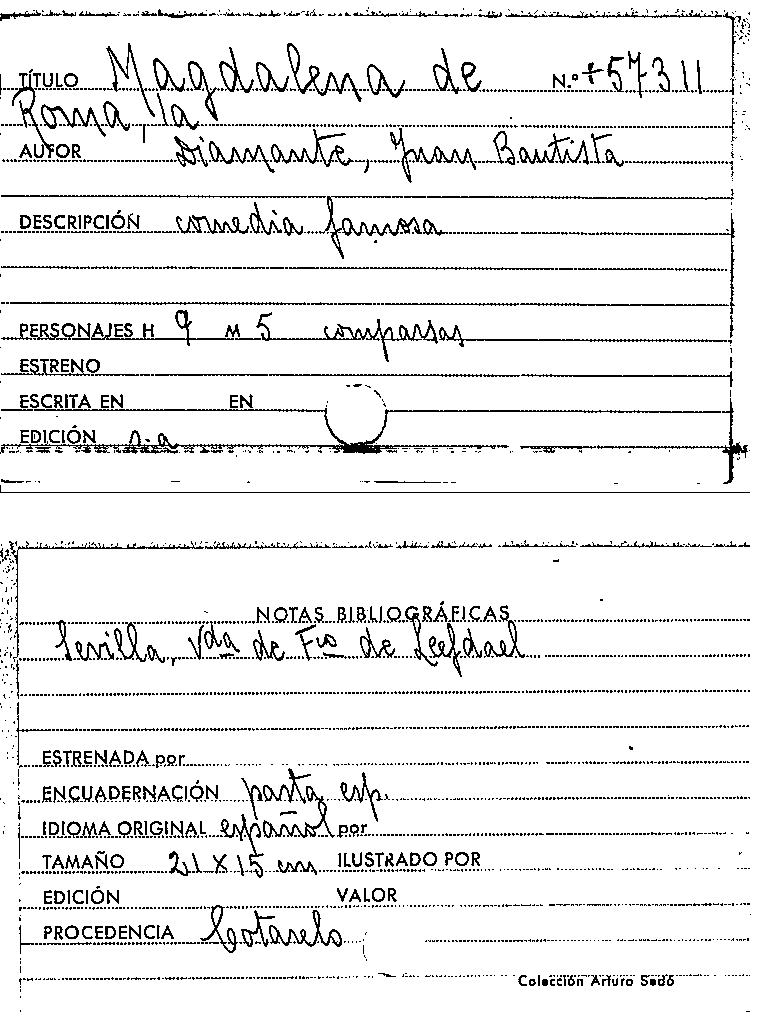 TÍTULO Magdalena de N.º +57311
Roma, la
AUTOR Diamante, Juan Bautista
DESCRIPCIÓN comedia famosa
PERSONAJES H 9 M 5 comparsas
ESTRENO
ESCRITA EN EN
EDICIÓN s.a
NOTAS BIBLIOGRÁFICAS
Sevilla, Vda de Fco de Leefdael
ESTRENADA por
ENCUADERNACIÓN pasta esp.
IDIOMA ORIGINAL español por
TAMAÑO 21 X 15 cm ILUSTRADO POR
EDICIÓN VALOR
PROCEDENCIA Cotarelo
Colección Arturo Sedó